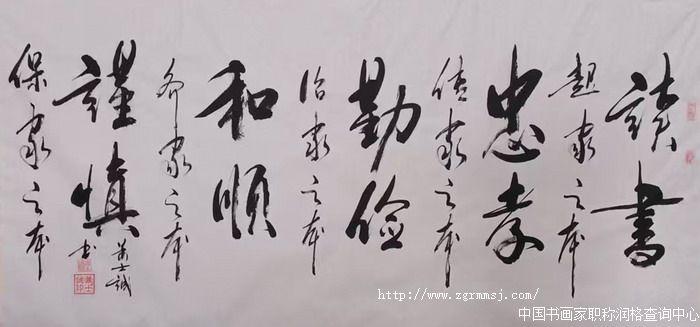 读書
起家之本
忠孝
传家之本
勤俭
治家之本
和順
齐家之本
謹慎
保家之本
士誠书
http://www.zgrmmsj.com
中国书画家职称润格查询中心